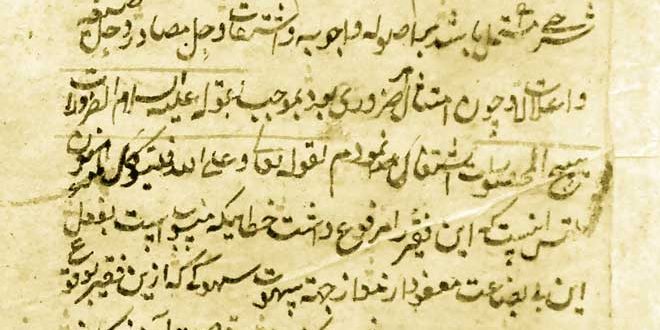 شرحی مشتمل باشد بر اصوله و اجوبه و اشتقاقات و حل مصادر و حل صیغه
و اعلالات و چون امتثال امر ضروری بود بموجب بقوله علیه السلام الضرورات
تبیح المحظورات اشتغال نمودم لقوله تعالی و علی الله فلیتوکل المؤمنون
ملتمس اینست که این فقیر را مرفوع داشت خطاییکه منسوب است بفعل
این بی بضاعت معفو دارند و از جهة سهوی که ازین فقیر بوقوع